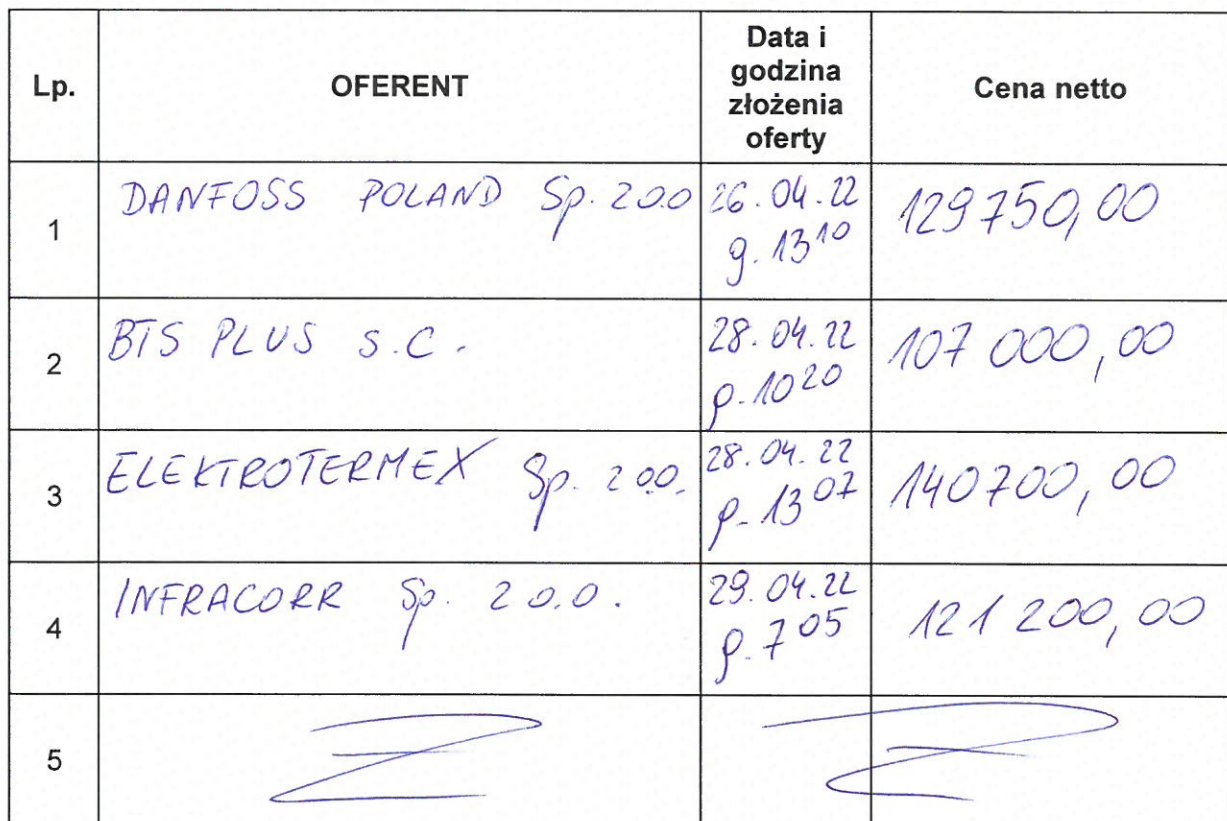 Lp. OFERENT Data i godzina złożenia oferty Cena netto
1 DANFOSS POLAND Sp. z o.o 26.04.22 g. 13¹⁰ 129 750,00
2 BTS PLUS s.c. 28.04.22 g. 10²⁰ 107 000,00
3 ELEKTROTERMEX Sp. z o.o. 28.04.22 g. 13⁰⁷ 140 700,00
4 INFRACORR Sp. z o.o. 29.04.22 g. 7⁰⁵ 121 200,00
5